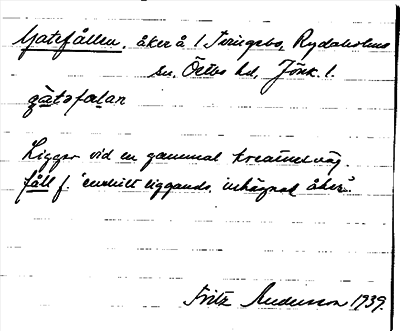 Gatefållen, åker å 1 Toringsbo, Rydaholms
sn, Östbo hd, Jönk. l.
gatəfalan
Ligger vid en gammal kreatursväg.
fåll f. "enskilt liggande, inhägnad åker".
Fritz Andersson 1939.